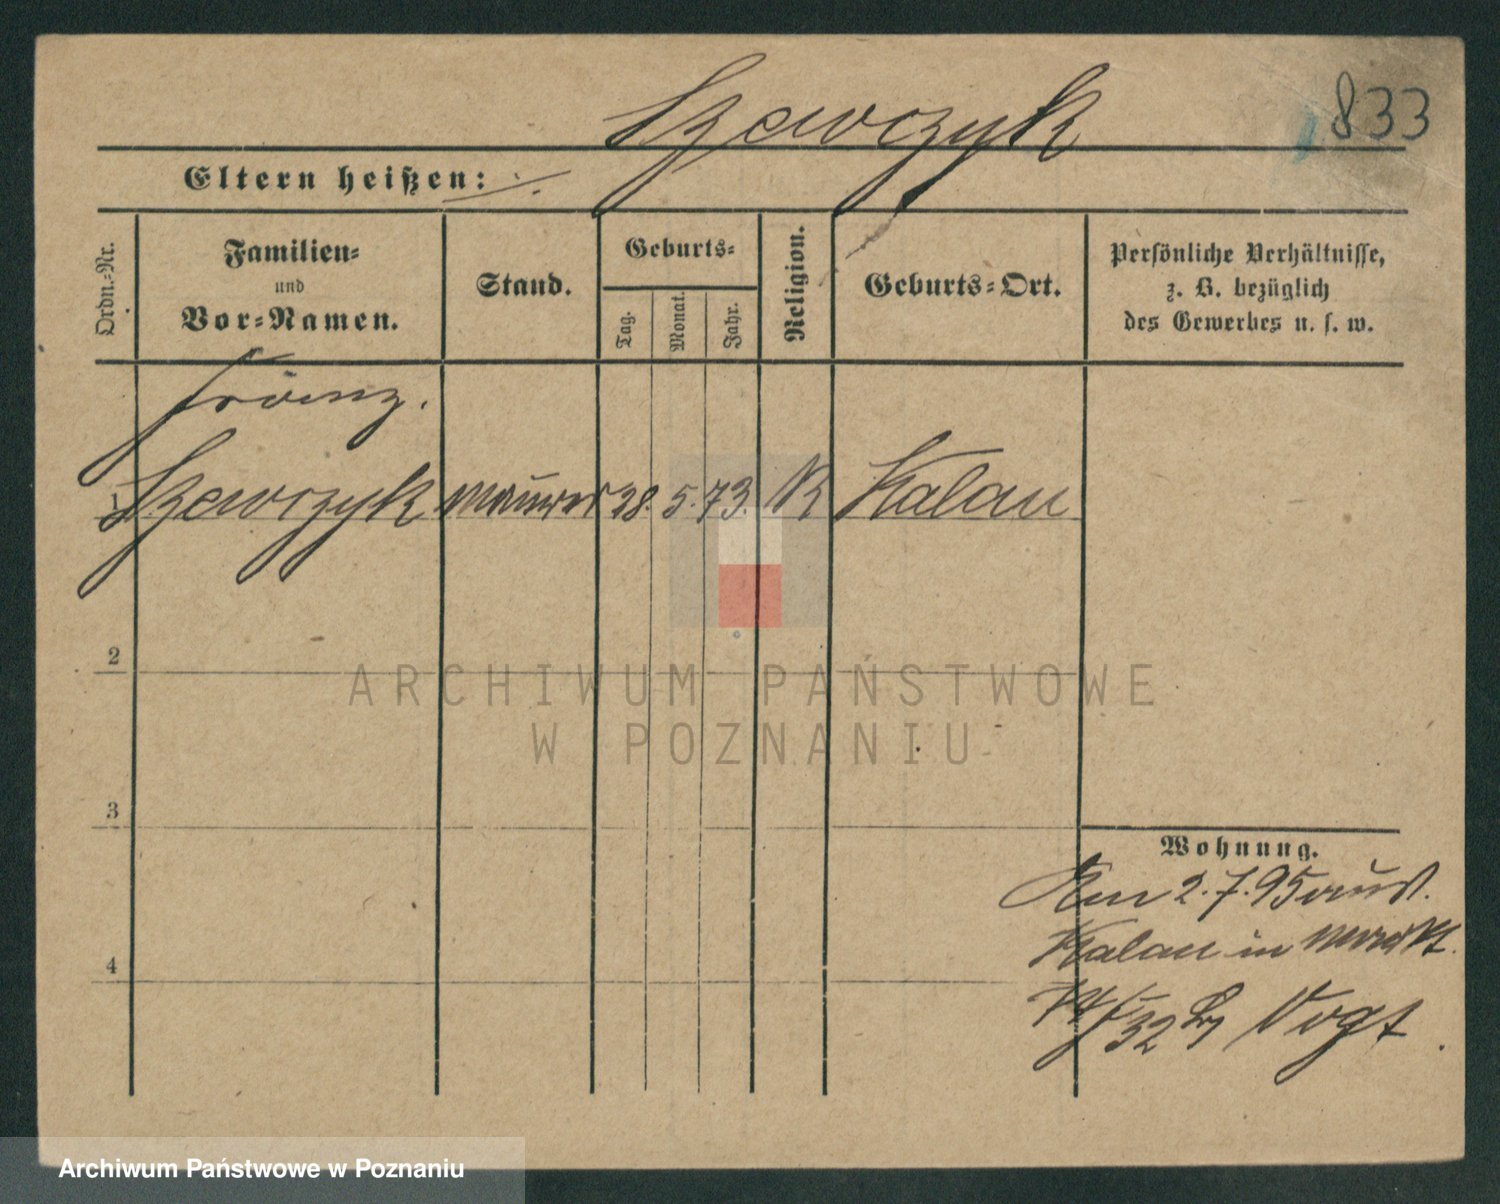 Szewczyk
833
Eltern heißen:
Ordn.-Nr.
Familien-
und
Vor-Namen.
Stand.
Geburts-
Tag.
Monat.
Jahr.
Religion.
Geburts-Ort.
Persönliche Verhältnisse,
z. B. bezüglich
des Gewerbes u. s. w.
Franz.
1 Szewczyk Maurer 28. 5. 73. K Kalau
2
3
4
Wohnung.
Am 2.7.95 aus
Kalau in Markt
32 Vogt
ARCHIWUM PAŃSTWOWE
W POZNANIU
Archiwum Państwowe w Poznaniu